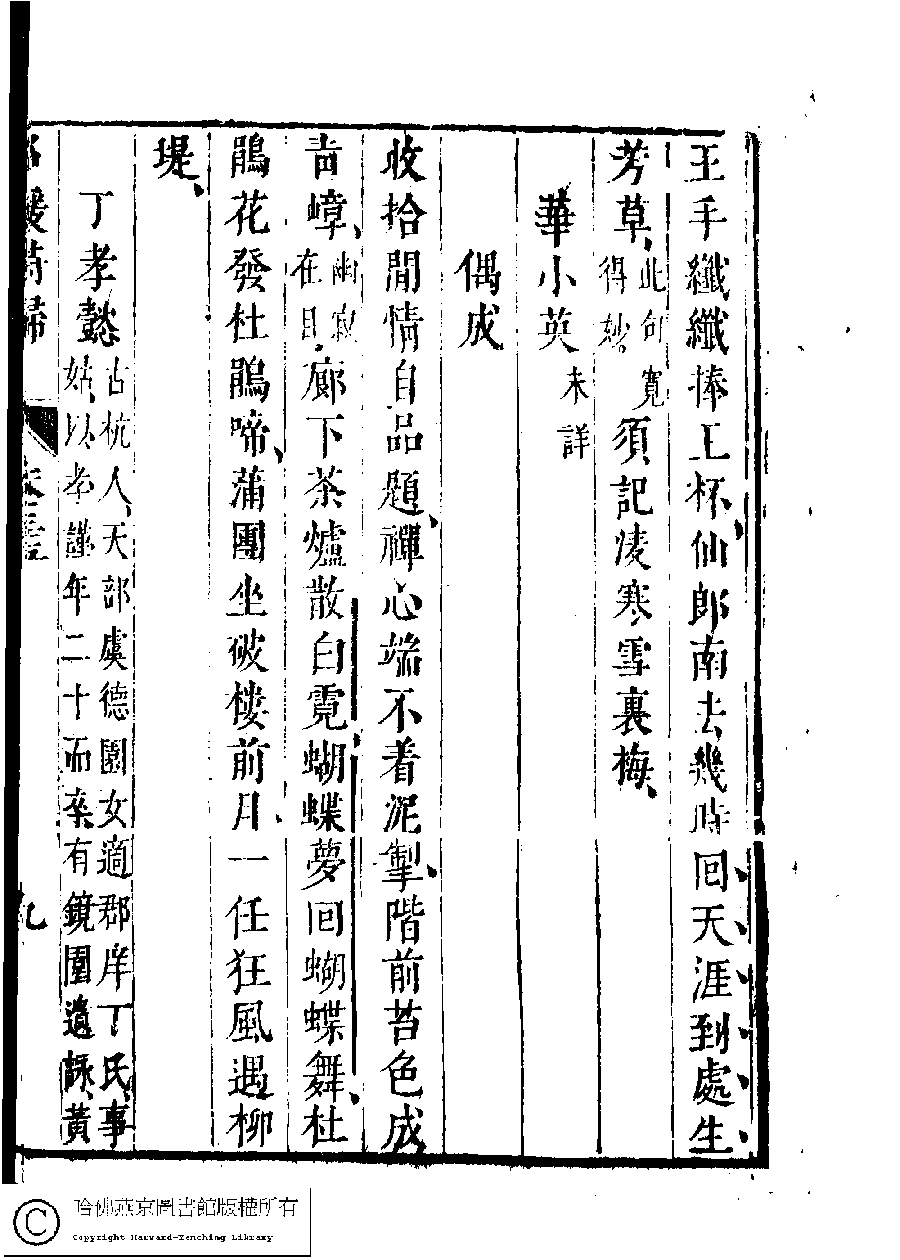 玉手纖纖捧玉杯仙郎南去幾時囘天涯到處生
芳草此句寛得妙須記凌寒雪裏梅
華小英未詳
偶成
收拾閒情自品題禪心端不着泥掣階前苔色成
青嶂幽寂在目廊下茶爐散白霓蝴蝶夢囘蝴蝶舞杜
鵑花發杜鵑啼蒲團坐破樓前月一任狂風過柳
堤
丁孝懿古杭人天部虞德園女適郡庠丁氏事姑以孝謹年二十而卒有鏡園遺詠黃
名媛詩歸
九
哈佛燕京圖書館版權所有
Copyright Harvard-Yenching Library